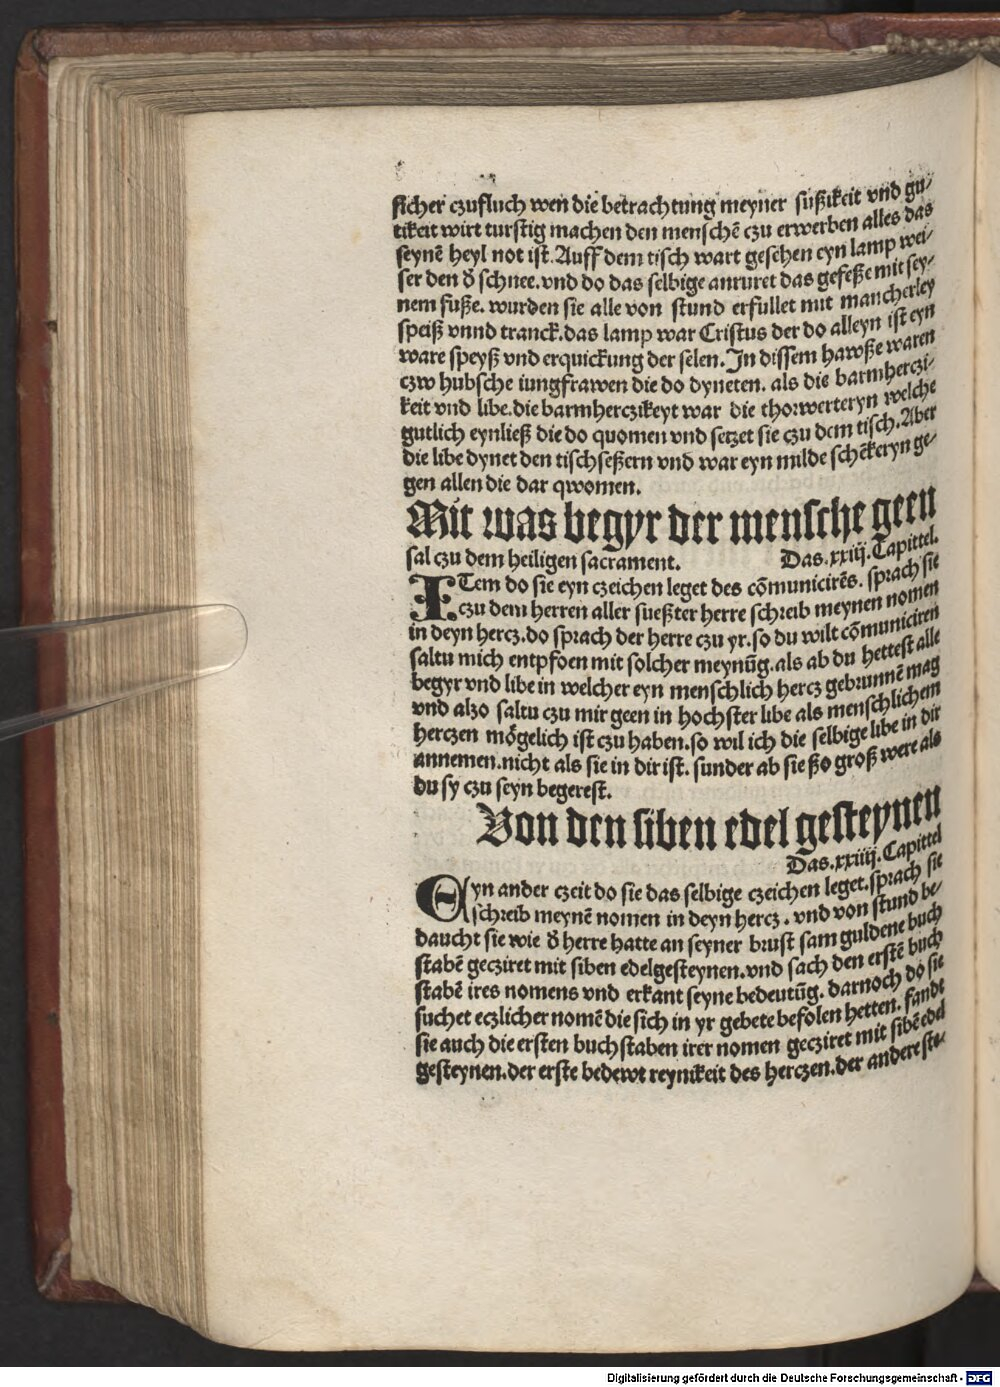 ſicher czufluch wen die betrachtung meyner ſußikeit vnd gu⸗
tikeit wirt turſtig machen den menſchē czu erwerben alles das
ſeynē heyl not iſt. Auff dem tiſch wart geſehen eyn lamp wei⸗
ſer den d̕ ſchnee. vnd do das ſelbige anruret das gefeße mit ſey⸗
nem fuße. wurden ſie alle von ſtund erfullet mit mancherley
ſpeiß vnnd tranck. das lamp war Criſtus der do alleyn iſt eyn
ware ſpeyß vnd erquickung der ſelen. In diſſem hawße waren
czw hubſche iungfrawen die do dyneten. als die barmherczi⸗
keit vnd libe. die barmherczikeyt war die thorwerteryn welche
gutlich eynließ die do quomen vnd ſetzet ſie czu dem tiſch. Aber
die libe dynet den tiſchſeßern vnd war eyn milde ſchēkeryn ge⸗
gen allen die dar qwomen.
Mit was begyr der menſche geen
ſal czu dem heiligen ſacrament. Das. xxiij. Capittel.
ITem do ſie eyn czeichen leget des cōmunicirēs. ſprach ſie
czu dem herren aller ſueßter herre ſchreib meynen nomen
in deyn hercz. do ſprach der herre czu yr. ſo du wilt cōmuniciren
ſaltu mich entpfoen mit ſolcher meynūg. als ab du hetteſt alle
begyr vnd libe in welcher eyn menſchlich hercz gebrunnē mag
vnd alzo ſaltu czu mir geen in hochſter libe als menſchlichem
herczen mögelich iſt czu haben. ſo wil ich die ſelbige libe in dir
annemen. nicht als ſie in dir iſt. ſunder ab ſie ßo groß were als
du ſy czu ſeyn begereſt.
Von den ſiben edel geſteynen
Das. xxiiij. Capittel
Eyn ander czeit do ſie das ſelbige czeichen leget. ſprach ſie
ſchreib meynē nomen in deyn hercz. vnd von ſtund be⸗
daucht ſie wie d̕ herre hatte an ſeyner bruſt ſam guldene buch
ſtabē gecziret mit ſiben edelgeſteynen. vnd ſach den erſtē buch
ſtabē ires nomens vnd erkant ſeyne bedeutūg. darnoch do ſie
ſuchet eczlicher nomē die ſich in yr gebete befolen hetten. fandt
ſie auch die erſten buchſtaben irer nomen gecziret mit ſibē edel
geſteynen. der erſte bedewt reynikeit des herczen. der andere ſte⸗
Digitalisierung gefördert durch die Deutsche Forschungsgemeinschaft - DFG